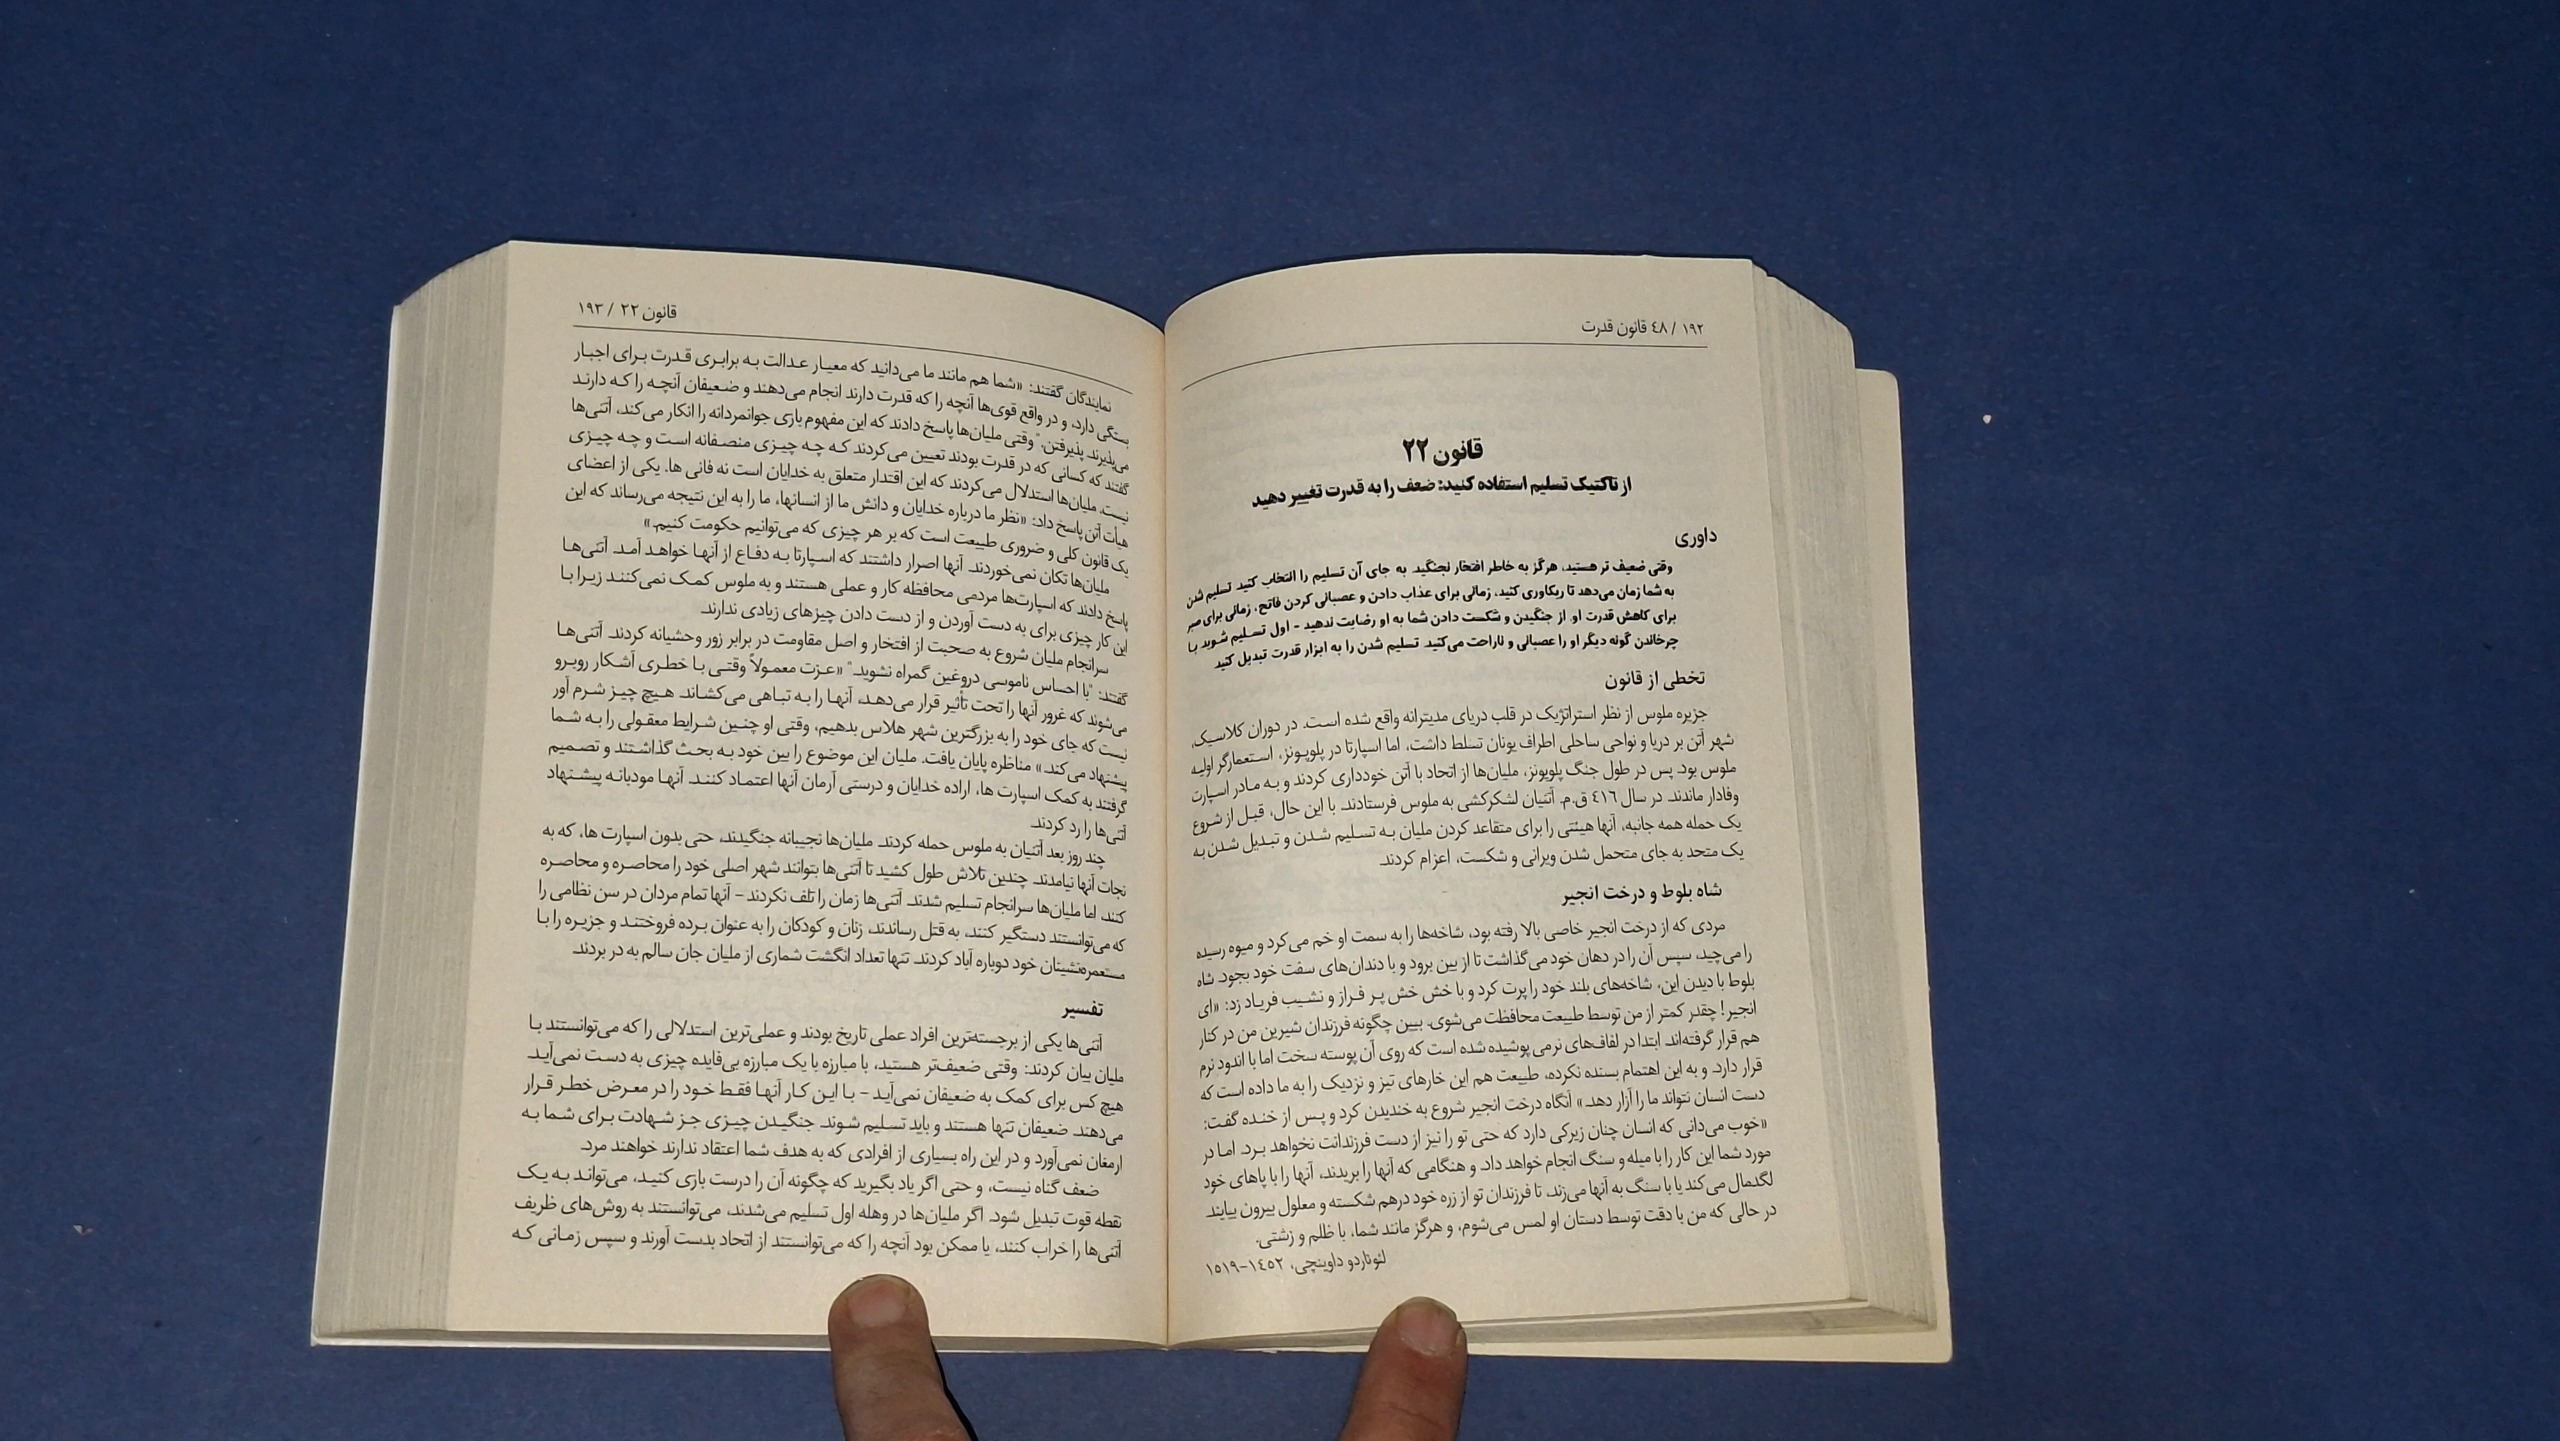 ۱۹۲ / ٤٨ قانون قدرت
قانون ۲۲
از تاکتیک تسلیم استفاده کنید: ضعف را به قدرت تغییر دهید
داوری
وقتی ضعیف تر هستید، هرگز به خاطر افتخار نجنگید. به جای آن تسلیم را انتخاب کنید. تسلیم شدن
به شما زمان می‌دهد تا ریکاوری کنید، زمانی برای عذاب دادن و عصبانی کردن فاتح، زمانی برای صبر
برای کاهش قدرت او. از جنگیدن و شکست دادن شما به او رضایت ندهید - اول تسلیم شوید. با
چرخاندن گونه دیگر او را عصبانی و ناراحت می‌کنید. تسلیم شدن را به ابزار قدرت تبدیل کنید
تخطی از قانون
جزیره ملوس از نظر استراتژیک در قلب دریای مدیترانه واقع شده است. در دوران کلاسیک،
شهر آتن بر دریا و نواحی ساحلی اطراف یونان تسلط داشت، اما اسپارتا در پلوپونز، استعمارگر اولیه
ملوس بود. پس در طول جنگ پلوپونز، ملیان‌ها از اتحاد با آتن خودداری کردند و به مادر اسپارت
وفادار ماندند. در سال ٤١٦ ق.م. آتنیان لشکرکشی به ملوس فرستادند. با این حال، قبل از شروع
یک حمله همه جانبه، آنها هیئتی را برای متقاعد کردن ملیان به تسلیم شدن و تبدیل شدن به
یک متحد به جای متحمل شدن ویرانی و شکست، اعزام کردند.
شاه بلوط و درخت انجیر
مردی که از درخت انجیر خاصی بالا رفته بود، شاخه‌ها را به سمت او خم می‌کرد و میوه رسیده
را می‌چید، سپس آن را در دهان خود می‌گذاشت تا از بین برود و با دندان‌های سفت خود بجود. شاه
بلوط با دیدن این، شاخه‌های بلند خود را پرت کرد و با خش خش پر فراز و نشیب فریاد زد: «ای
انجیر! چقدر کمتر از من توسط طبیعت محافظت می‌شوی. ببین چگونه فرزندان شیرین من در کنار
هم قرار گرفته‌اند. ابتدا در لفاف‌های نرمی پوشیده شده است که روی آن پوسته سخت اما با اندود نرم
قرار دارد. و به این اهتمام بسنده نکرده، طبیعت هم این خارهای تیز و نزدیک را به ما داده است که
دست انسان نتواند ما را آزار دهد.» آنگاه درخت انجیر شروع به خندیدن کرد و پس از خنده گفت:
«خوب می‌دانی که انسان چنان زیرکی دارد که حتی تو را نیز از دست فرزندانت نخواهد برد. اما در
مورد شما این کار را با میله و سنگ انجام خواهد داد. و هنگامی که آنها را بریدند، آنها را با پاهای خود
لگدمال می‌کند یا با سنگ به آنها می‌زند، تا فرزندان تو از زره خود درهم شکسته و معلول بیرون بیایند.
در حالی که من با دقت توسط دستان او لمس می‌شوم، و هرگز مانند شما، با ظلم و زشتی.
لئوناردو داوینچی، ١٤٥٢-١٥١٩
قانون ۲۲ / ۱۹۳
نمایندگان گفتند: «شما هم مانند ما می‌دانید که معیار عدالت به برابری قدرت برای اجبار
بستگی دارد، و در واقع قوی‌ها آنچه را که قدرت دارند انجام می‌دهند و ضعیفان آنچه را که دارند
می‌پذیرند. پذیرفتن." وقتی ملیان‌ها پاسخ دادند که این مفهوم بازی جوانمردانه را انکار می‌کند، آتنی‌ها
گفتند که کسانی که در قدرت بودند تعیین می‌کردند که چه چیزی منصفانه است و چه چیزی
نیست. ملیان‌ها استدلال می‌کردند که این اقتدار متعلق به خدایان است نه فانی ها. یکی از اعضای
هیأت آتن پاسخ داد: «نظر ما درباره خدایان و دانش ما از انسانها، ما را به این نتیجه می‌رساند که این
یک قانون کلی و ضروری طبیعت است که بر هر چیزی که می‌توانیم حکومت کنیم.»
ملیان‌ها تکان نمی‌خوردند. آنها اصرار داشتند که اسپارتا به دفاع از آنها خواهد آمد. آتنی‌ها
پاسخ دادند که اسپارت‌ها مردمی محافظه کار و عملی هستند و به ملوس کمک نمی‌کنند زیرا با
این کار چیزی برای به دست آوردن و از دست دادن چیزهای زیادی ندارند.
سرانجام ملیان شروع به صحبت از افتخار و اصل مقاومت در برابر زور وحشیانه کردند. آتنی‌ها
گفتند: "با احساس ناموسی دروغین گمراه نشوید." «عزت معمولاً وقتی با خطری آشکار روبرو
می‌شوند که غرور آنها را تحت تأثیر قرار می‌دهد، آنها را به تباهی می‌کشاند. هیچ چیز شرم آور
نیست که جای خود را به بزرگترین شهر هلاس بدهیم، وقتی او چنین شرایط معقولی را به شما
پیشنهاد می‌کند.» مناظره پایان یافت. ملیان این موضوع را بین خود به بحث گذاشتند و تصمیم
گرفتند به کمک اسپارت ها، اراده خدایان و درستی آرمان آنها اعتماد کنند. آنها مودبانه پیشنهاد
آتنی‌ها را رد کردند.
چند روز بعد آتنیان به ملوس حمله کردند. ملیان‌ها نجیبانه جنگیدند، حتی بدون اسپارت ها، که به
نجات آنها نیامدند. چندین تلاش طول کشید تا آتنی‌ها بتوانند شهر اصلی خود را محاصره و محاصره
کنند، اما ملیان‌ها سرانجام تسلیم شدند. آتنی‌ها زمان را تلف نکردند - آنها تمام مردان در سن نظامی را
که می‌توانستند دستگیر کنند، به قتل رساندند، زنان و کودکان را به عنوان برده فروختند و جزیره را با
مستعمره‌نشینان خود دوباره آباد کردند. تنها تعداد انگشت شماری از ملیان جان سالم به در بردند.
تفسیر
آتنی‌ها یکی از برجسته‌ترین افراد عملی تاریخ بودند و عملی‌ترین استدلالی را که می‌توانستند با
ملیان بیان کردند: وقتی ضعیف‌تر هستید، با مبارزه با یک مبارزه بی‌فایده چیزی به دست نمی‌آید.
هیچ کس برای کمک به ضعیفان نمی‌آید - با این کار آنها فقط خود را در معرض خطر قرار
می‌دهند. ضعیفان تنها هستند و باید تسلیم شوند. جنگیدن چیزی جز شهادت برای شما به
ارمغان نمی‌آورد و در این راه بسیاری از افرادی که به هدف شما اعتقاد ندارند خواهند مرد.
ضعف گناه نیست، و حتی اگر یاد بگیرید که چگونه آن را درست بازی کنید، می‌تواند به یک
نقطه قوت تبدیل شود. اگر ملیان‌ها در وهله اول تسلیم می‌شدند، می‌توانستند به روش‌های ظریف
آتنی‌ها را خراب کنند، یا ممکن بود آنچه را که می‌توانستند از اتحاد بدست آورند و سپس زمانی که